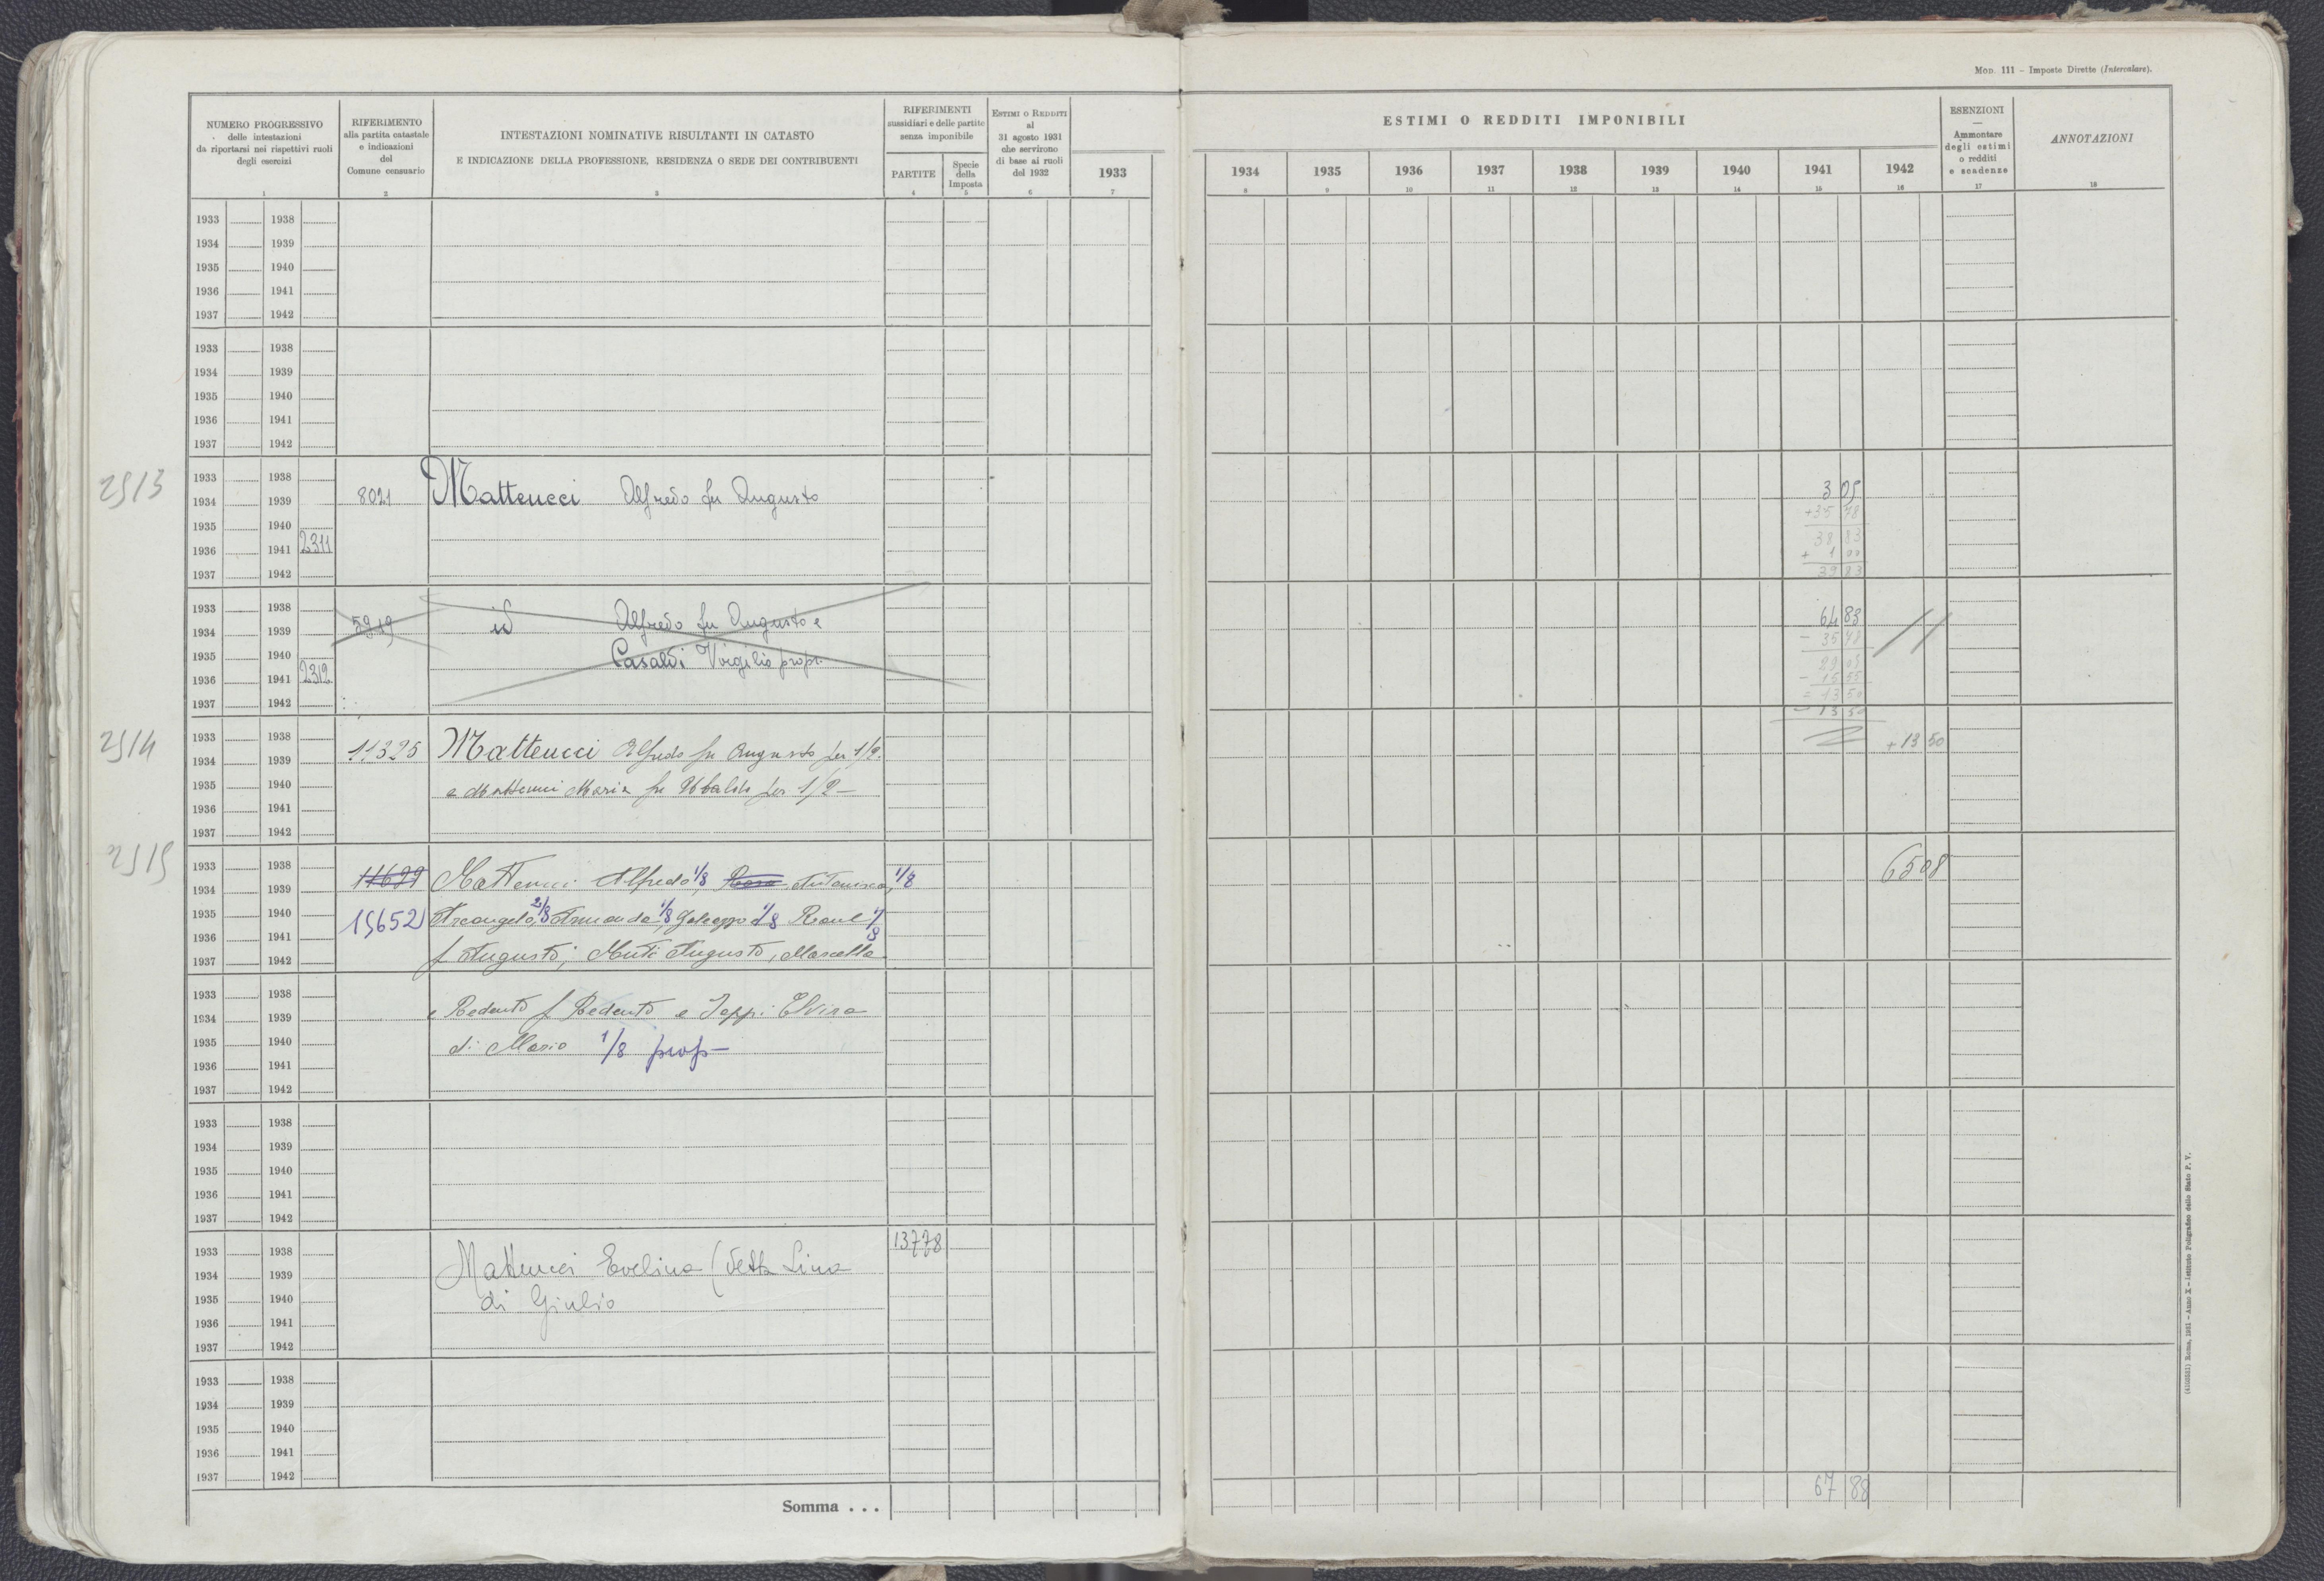 MOD. 111 – Imposte Dirette (Intercalare).
NUMERO PROGRESSIVO
delle intestazioni
da riportarsi nei rispettivi ruoli
degli esercizi
1
RIFERIMENTO
alla partita catastale
e indicazioni
del
Comune censuario
2
INTESTAZIONI NOMINATIVE RISULTANTI IN CATASTO
E INDICAZIONE DELLA PROFESSIONE, RESIDENZA O SEDE DEI CONTRIBUENTI
3
RIFERIMENTI
sussidiari e delle partite
senza imponibile
PARTITE
4
Specie
della
Imposta
5
ESTIMI O REDDITI
al
31 agosto 1931
che servirono
di base ai ruoli
del 1932
6
1933
7
ESTIMI O REDDITI IMPONIBILI
1934 1935 1936 1937 1938 1939 1940 1941 1942
8 9 10 11 12 13 14 15 16
ESENZIONI
—
Ammontare
degli estimi
o redditi
e scadenze
17
ANNOTAZIONI
18
1933 1938
1934 1939
1935 1940
1936 1941
1937 1942
1933 1938
1934 1939
1935 1940
1936 1941
1937 1942
2513
1933 1938
1934 1939 8021 Matteucci Alfredo fu Augusto 3 05
1935 1940 +35 78
1936 1941 2311 38 83
+ 1 00
1937 1942 39 83
1933 1938 5919 id Alfredo fu Augusto e 64 83
1934 1939 - 35 78
1935 1940 Casaldi Virgilio propr. 29 05
1936 1941 2312 - 15 55
1937 1942 = 13 50
- 13 50
2514
1933 1938 11325 Matteucci Alfredo fu Augusto per 1/2 +13 50
1934 1939
1935 1940 e Matteucci Maria fu Ubaldo per 1/2 –
1936 1941
1937 1942
2515
1933 1938 11629 Matteucci Alfredo 1/8, Antonina, 1/8 6508
1934 1939
1935 1940 15652 Arcangelo, 2/8 Armando 1/8, Galeazzo 1/8 Raul 1/8
1936 1941
1937 1942 f Augusto; Muti Augusto, Marcella
1933 1938
1934 1939 e Redento f Redento e Elvira
1935 1940 di Mario 1/8 prop –
1936 1941
1937 1942
1933 1938
1934 1939
1935 1940
1936 1941
1937 1942
13778
1933 1938 Matteucci Evelina (detta Lina
1934 1939
1935 1940 di Giulio
1936 1941
1937 1942
1933 1938
1934 1939
1935 1940
1936 1941
1937 1942
Somma . . . 67 88
Roma, 1931 – Anno X – Istituto Poligrafico dello Stato P. V.